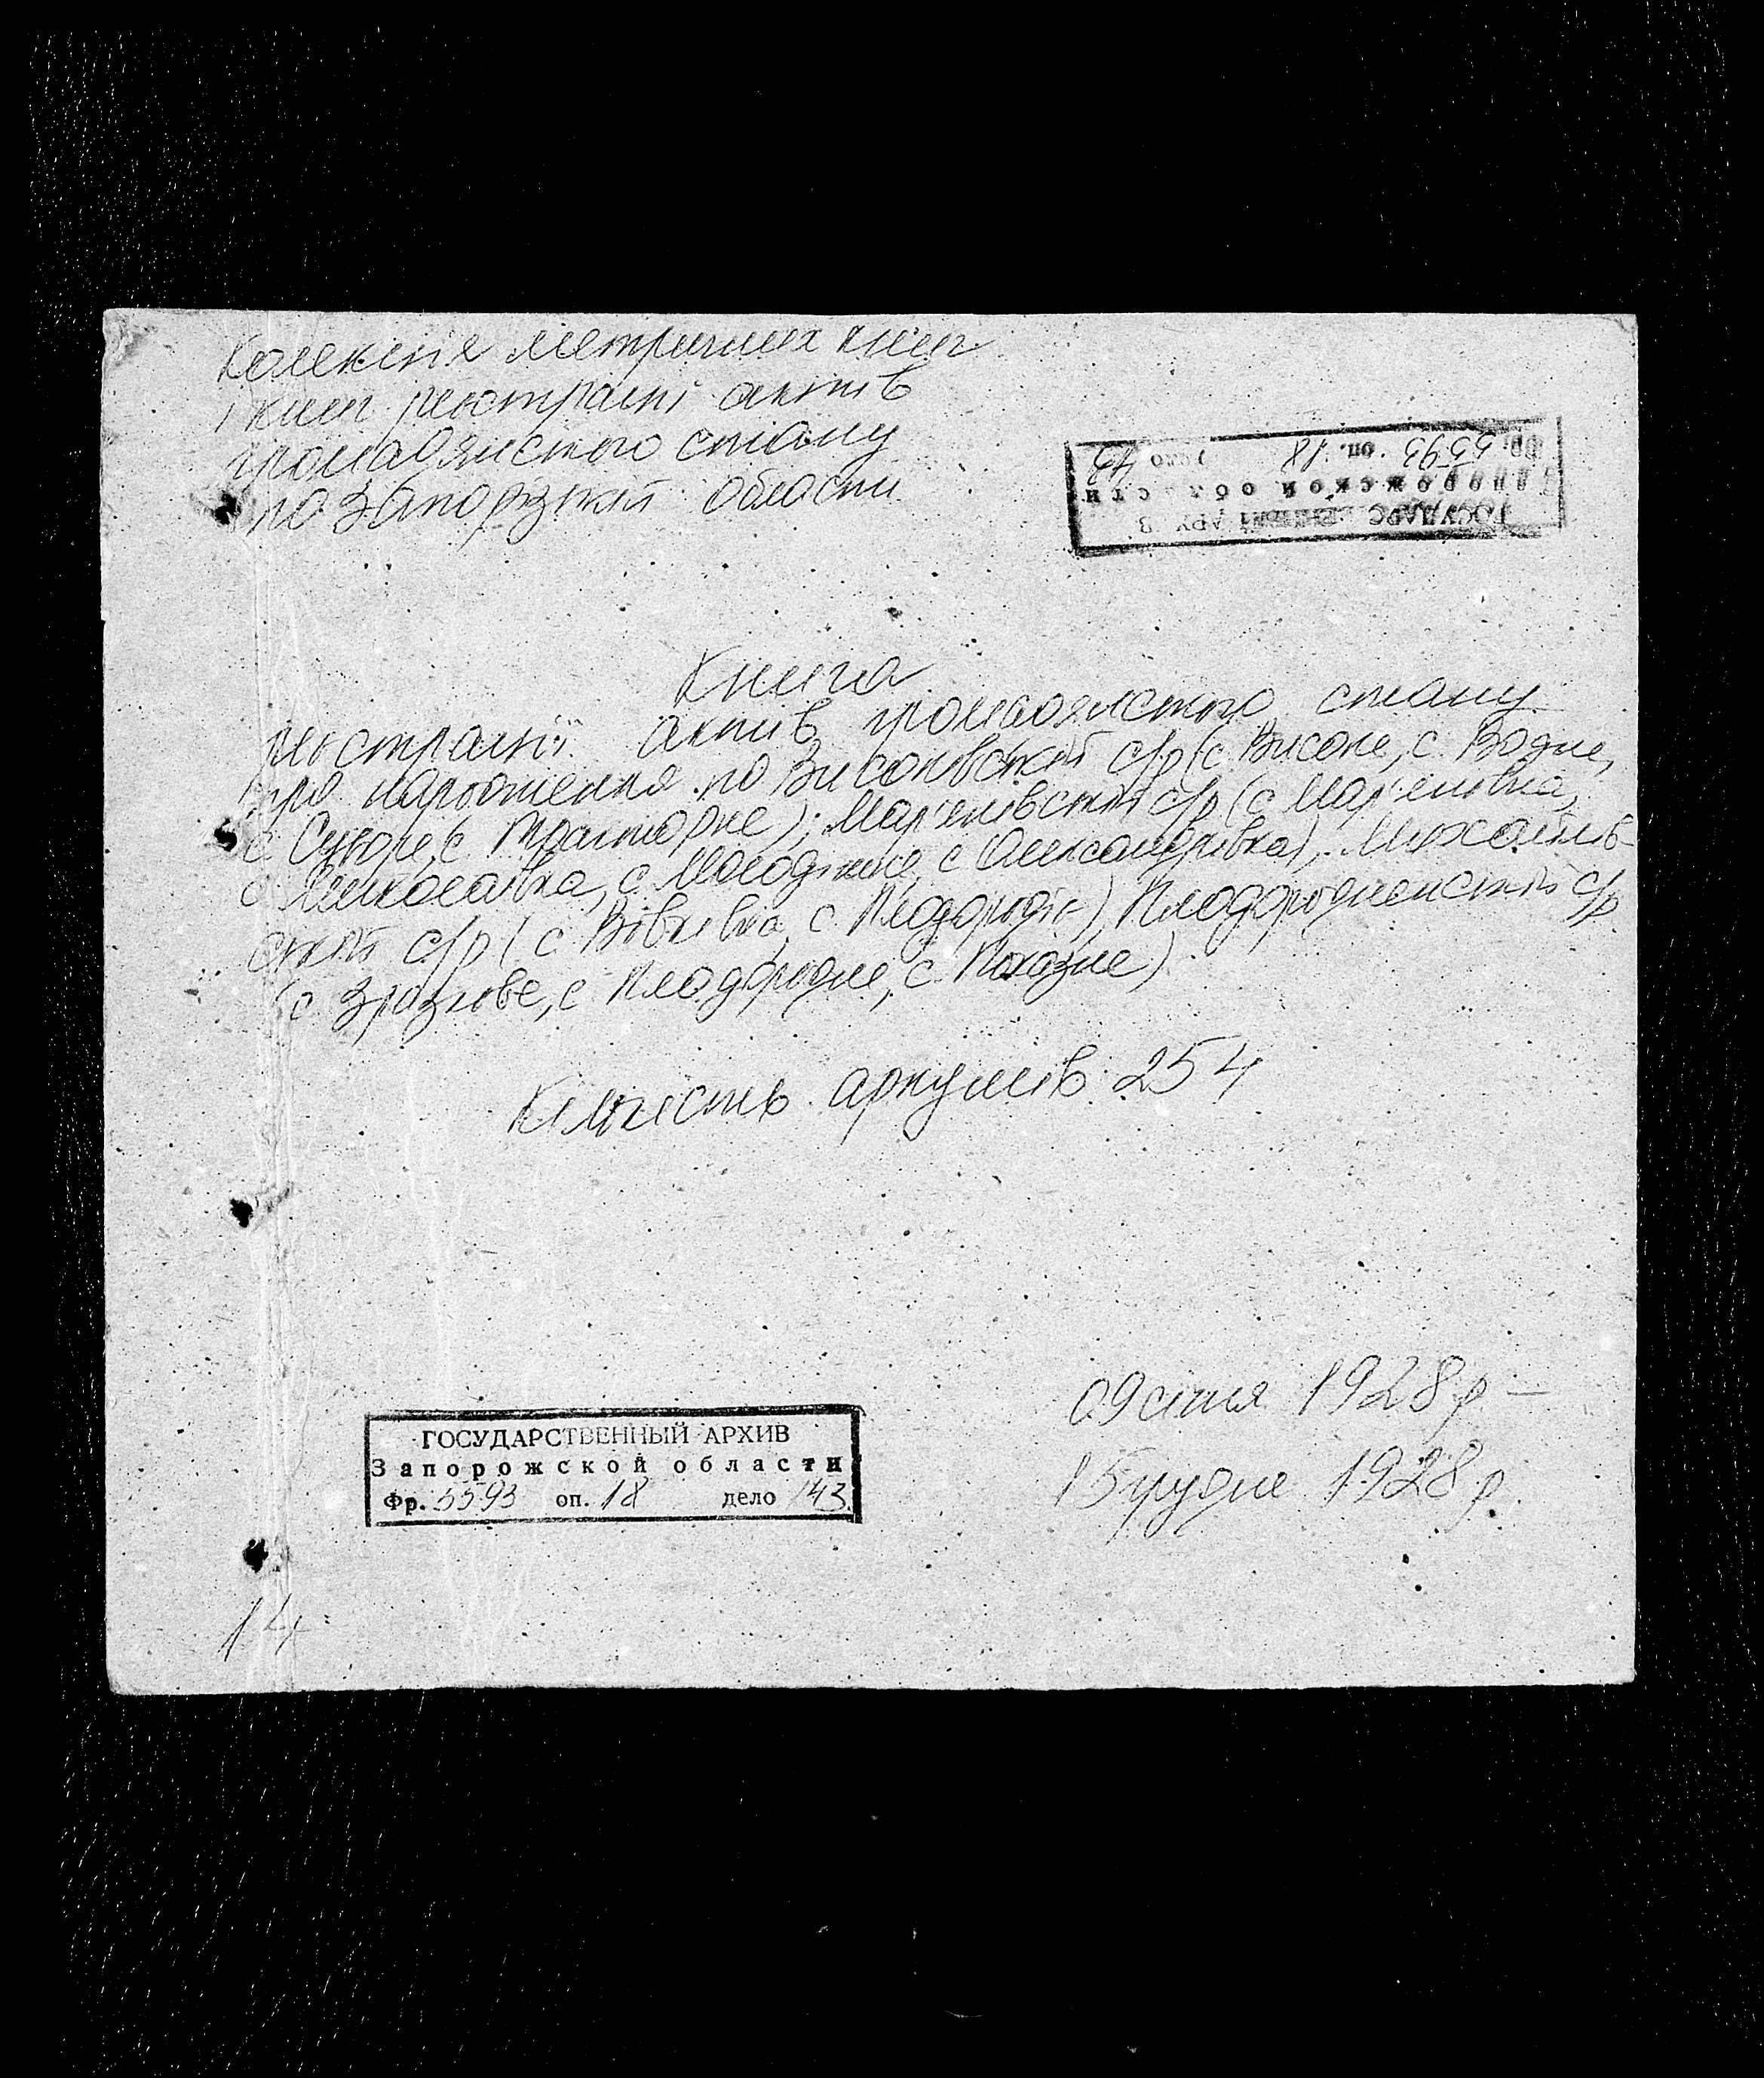 Колекція метричних книг
і книг реєстрації актів
громадянського стану
по Запорізькій області
Фр. 5593 оп. 18
Запорожской области
Книга
реєстрації актів громадянського стану
про народження по Височівській с/р (с. Високе, с. Водне,
с. Суворе, с. Тракторне); Мар'янівській с/р (с. Мар'янівка,
с. Миколаївка, с. Молодіжне, с. Олександрівка), Михайлів-
ській с/р (с. Вовківка, с. Плодородіє), Плодородненській с/р
(с. Зразкове, с. Плодородне, с. Показне)
Кількість аркушів: 254
09 січня 1928 р –
15 грудня 1928 р.
ГОСУДАРСТВЕННЫЙ АРХИВ
Запорожской области
Фр. 5593 оп. 18 дело 143
14